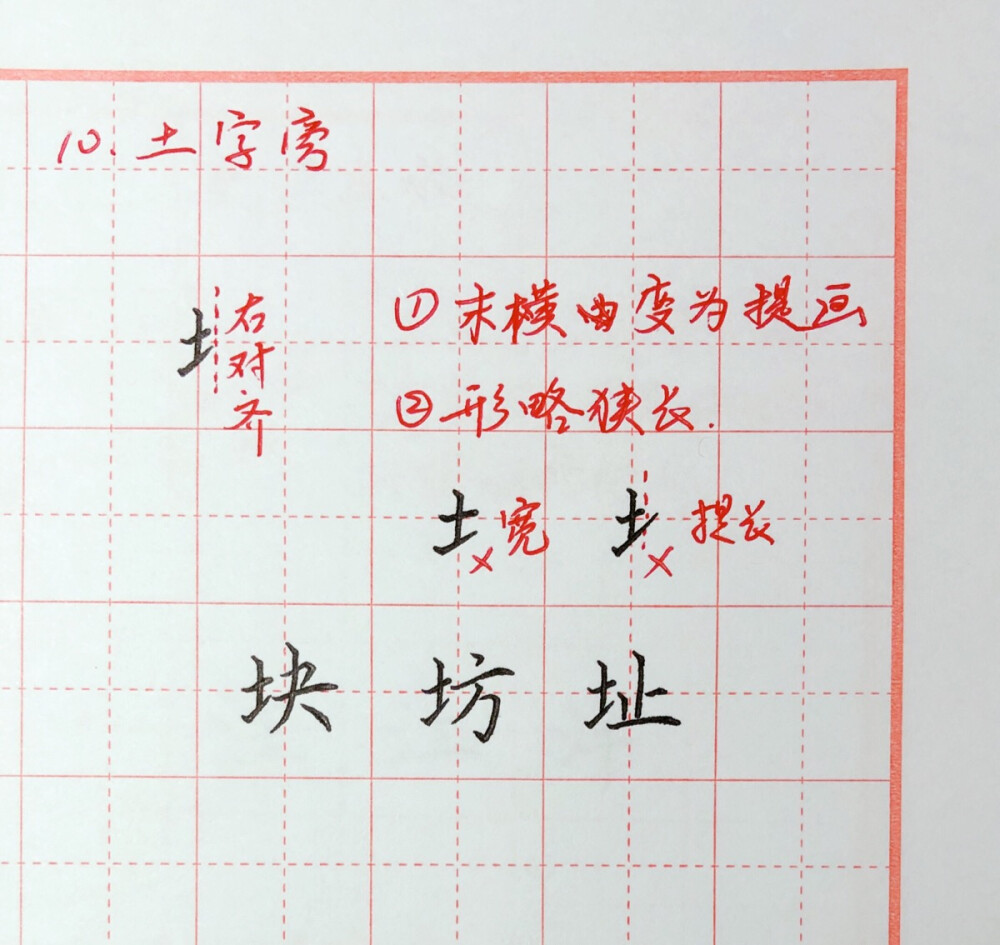 10. 土字旁
右对齐
① 末横由变为提画
② 形略狭长.
土 × 宽 土 × 提长
块 坊 址